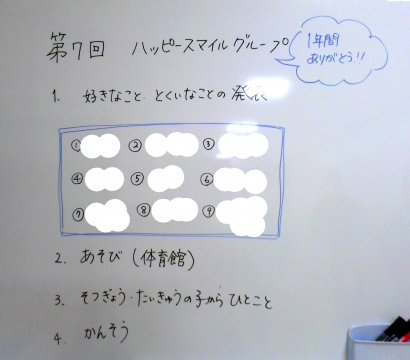 第7回 ハッピースマイルグループ
1年間
ありがとう!!
1. 好きなこと、とくいなことの発表
① ② ③
④ ⑤ ⑥
⑦ ⑧ ⑨
2. あそび (体育館)
3. そつぎょう・たいきゅうの子からひとこと
4. かんそう